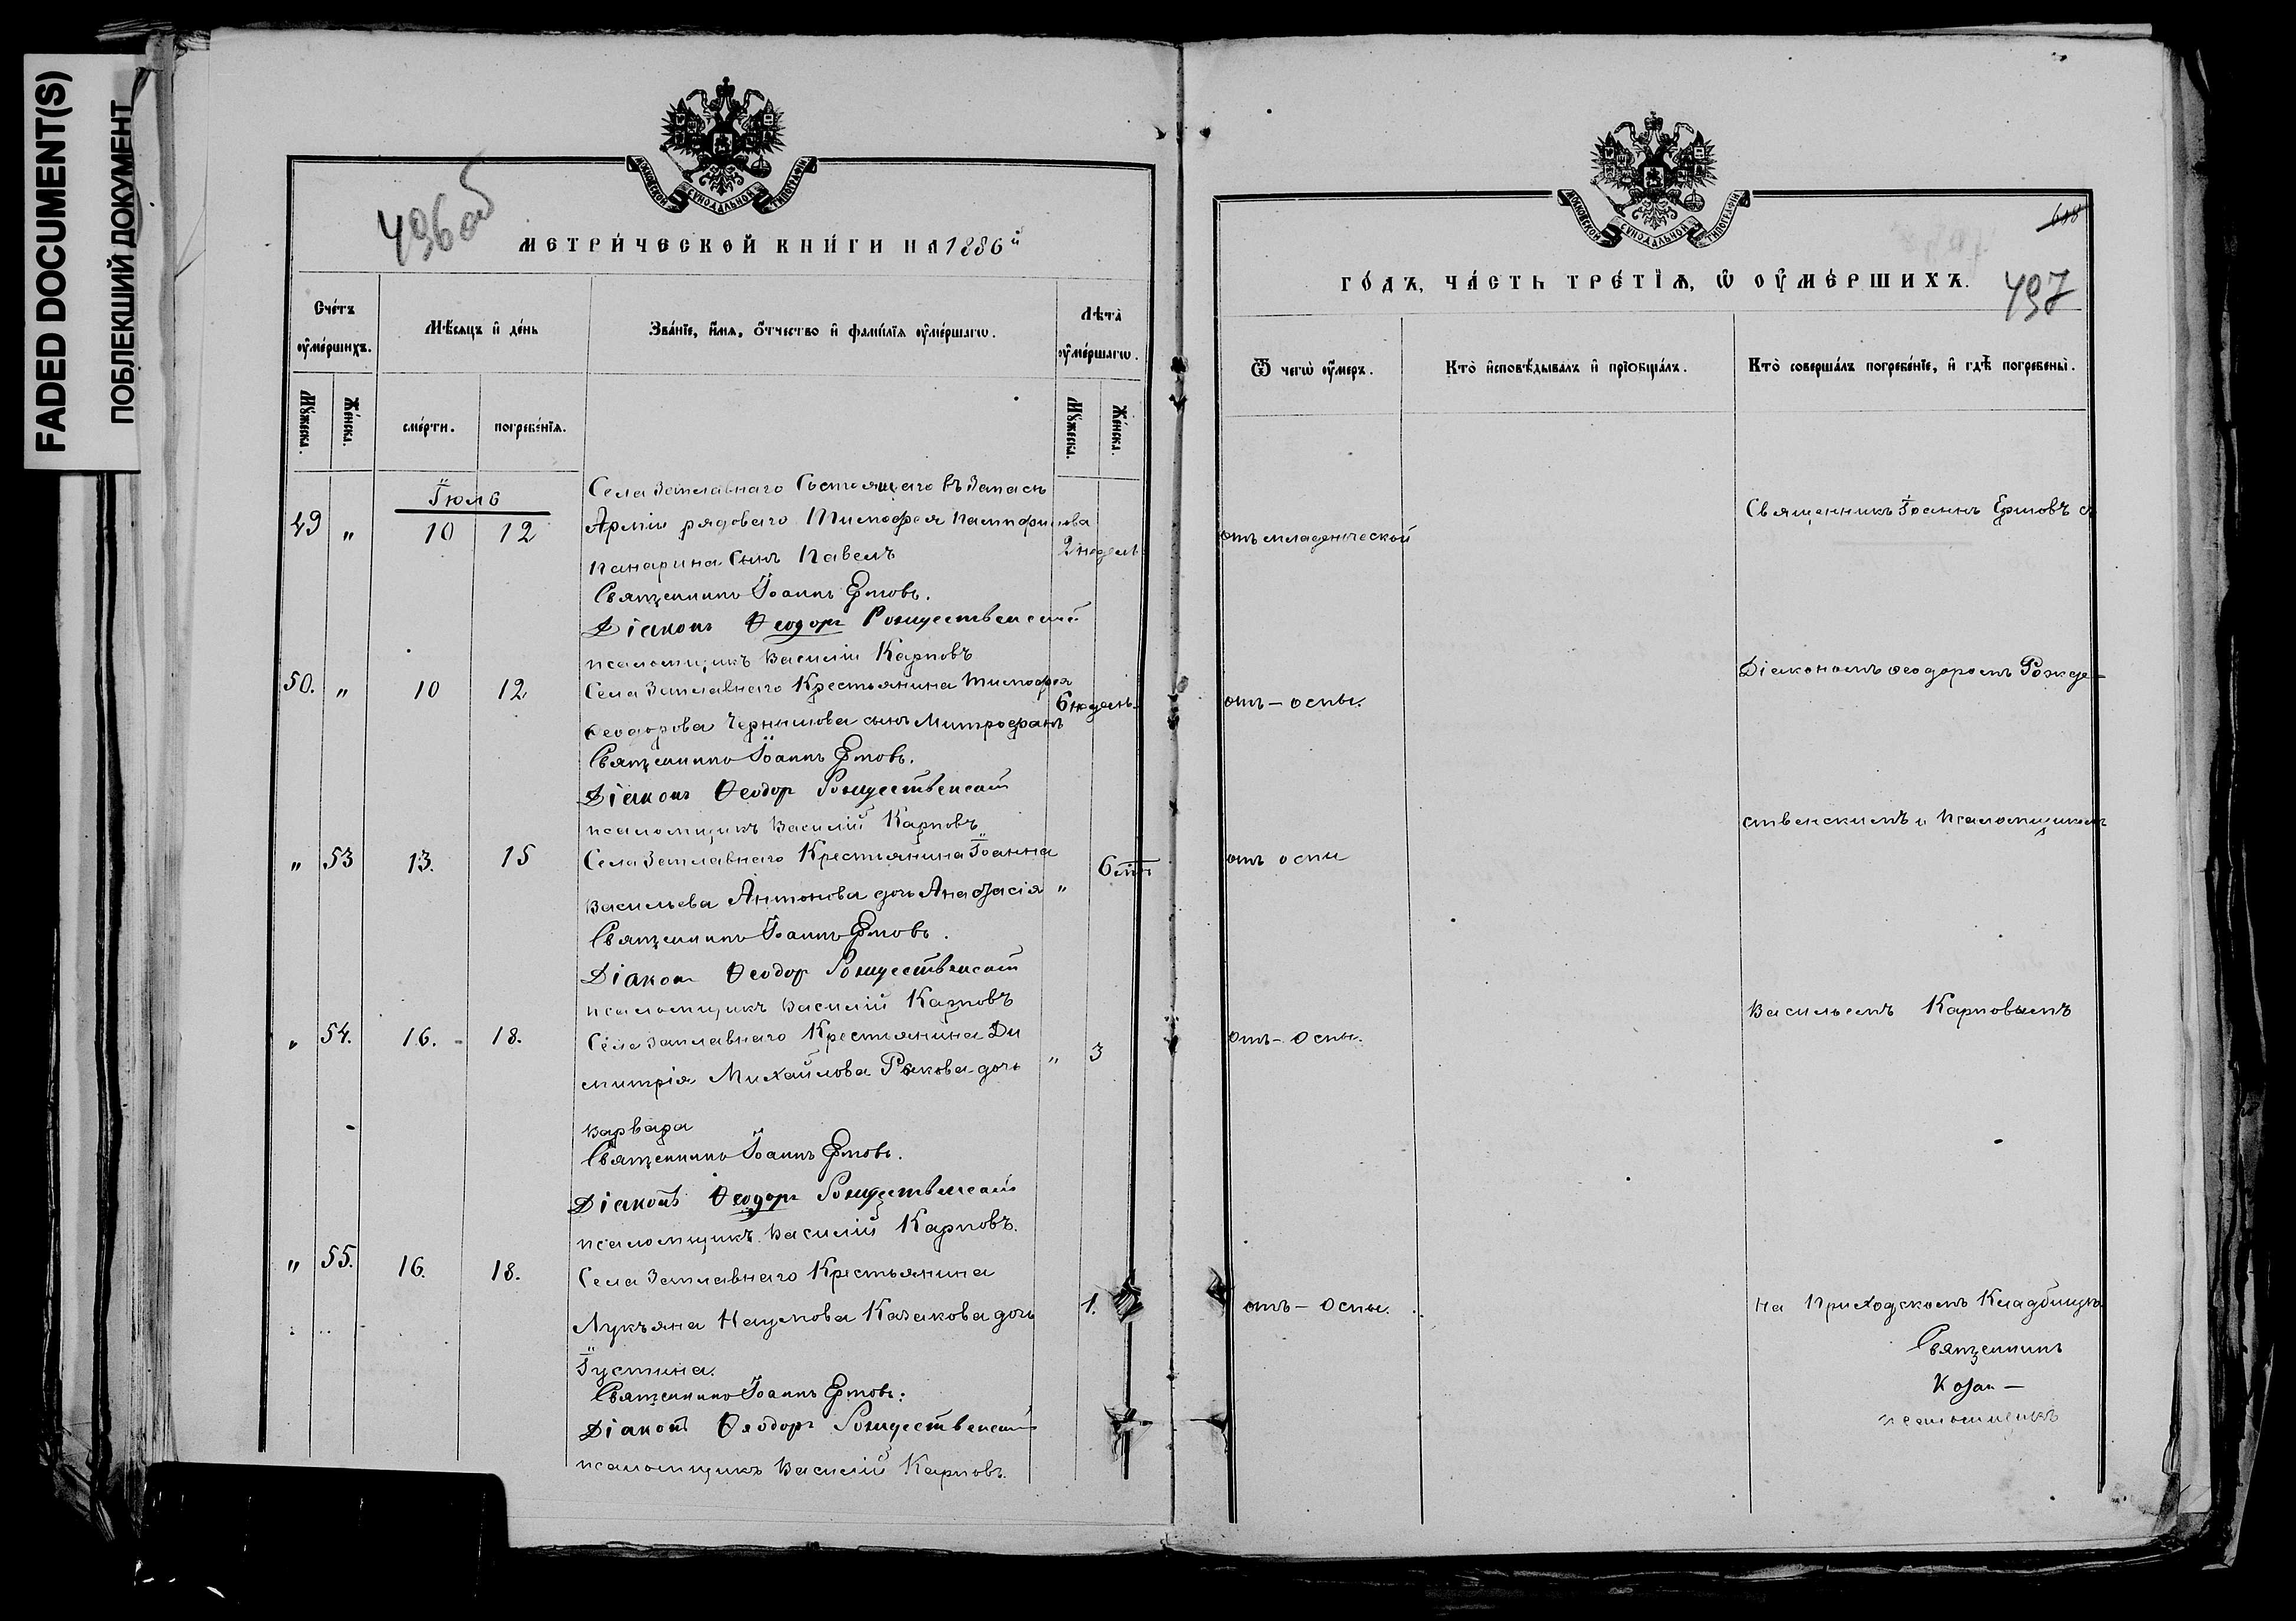 FADED DOCUMENT(S)
ПОБЛЕКШИЙ ДОКУМЕНТ
496 об
МОСКОВСКОЙ СѴНОДАЛЬНОЙ ТИПОГРАФІИ
МЕТРИ́ЧЕСКОЙ КНИ́ГИ НА 1886 й
Сче́тъ ᲂу҆ме́ршихъ.
Мѣ́сяцъ и҆ де́нь
Зва́нїе, и҆́мѧ, ѻ҆́тчество и҆ фами́лїѧ ᲂу҆ме́ршагѡ.
Лѣта̀ ᲂу҆ме́ршагѡ.
Мꙋ́жеска.
Же́нска.
сме́рти.
погребе́нїѧ.
Мꙋ́жеска.
Же́нска.
Іюль
49 " 10 12
Села Заплавнаго Состоящего въ Запасѣ
Арміи рядоваго Тимофея Памфилова
Панарина Сынъ Павелъ
2 недели
Священникъ Іоаннъ Ермовъ.
Діаконъ Ѳеодоръ Рождественскій
псаломщикъ Василій Карповъ
50. " 10 12
Села Заплавнаго Крестьянина Тимофея
Ѳеодорова Чернышова сынъ Митрофанъ
6 недель.
Священникъ Іоаннъ Ермовъ.
Діаконъ Ѳеодоръ Рождественскій
псаломщикъ Василій Карповъ
" 53 13. 15
Села Заплавнаго Крестьянина Іоанна
Васильева Антонова дочь Анастасія "
6 лѣтъ
Священникъ Іоаннъ Ермовъ.
Діаконъ Ѳеодоръ Рождественскій
псаломщикъ Василій Карповъ
" 54. 16. 18.
Села Заплавнаго Крестьянина Ди
митрія Михайлова Рыкова дочь " 3
Варвара
Священникъ Іоаннъ Ермовъ.
Діаконъ Ѳеодоръ Рождественскій
псаломщикъ Василій Карповъ.
" 55. 16. 18.
Села Заплавнаго Крестьянина
Лукъяна Наумова Казакова дочь 1.
Іустина.
Священникъ Іоаннъ Ермовъ.
Діаконъ Ѳеодоръ Рождественскій
псаломщикъ Василій Карповъ.
МОСКОВСКОЙ СѴНОДАЛЬНОЙ ТИПОГРАФІИ
ГО́ДЪ, ЧА́СТЬ ТРЕ́ТЇѦ, Ѡ҆ ОУ҆МЕ́РШИХЪ.
497
Ѿ чегѡ̀ ᲂу҆́меръ.
Кто̀ и҆сповѣ́дывалъ и҆ прїѻбща́лъ.
Кто̀ соверша́лъ погребе́нїе, и҆ гдѣ̀ погребены̀.
отъ младенческой
Священникъ Іоаннъ Ермовъ съ
отъ - оспы.
Діакономъ Ѳеодоромъ Рожде-
отъ оспы
ственскимъ и псаломщикомъ
отъ - Оспы.
Васильемъ Карповымъ
отъ - Оспы.
на Приходскомъ Кладбищѣ
Священникъ
псаломщикъ